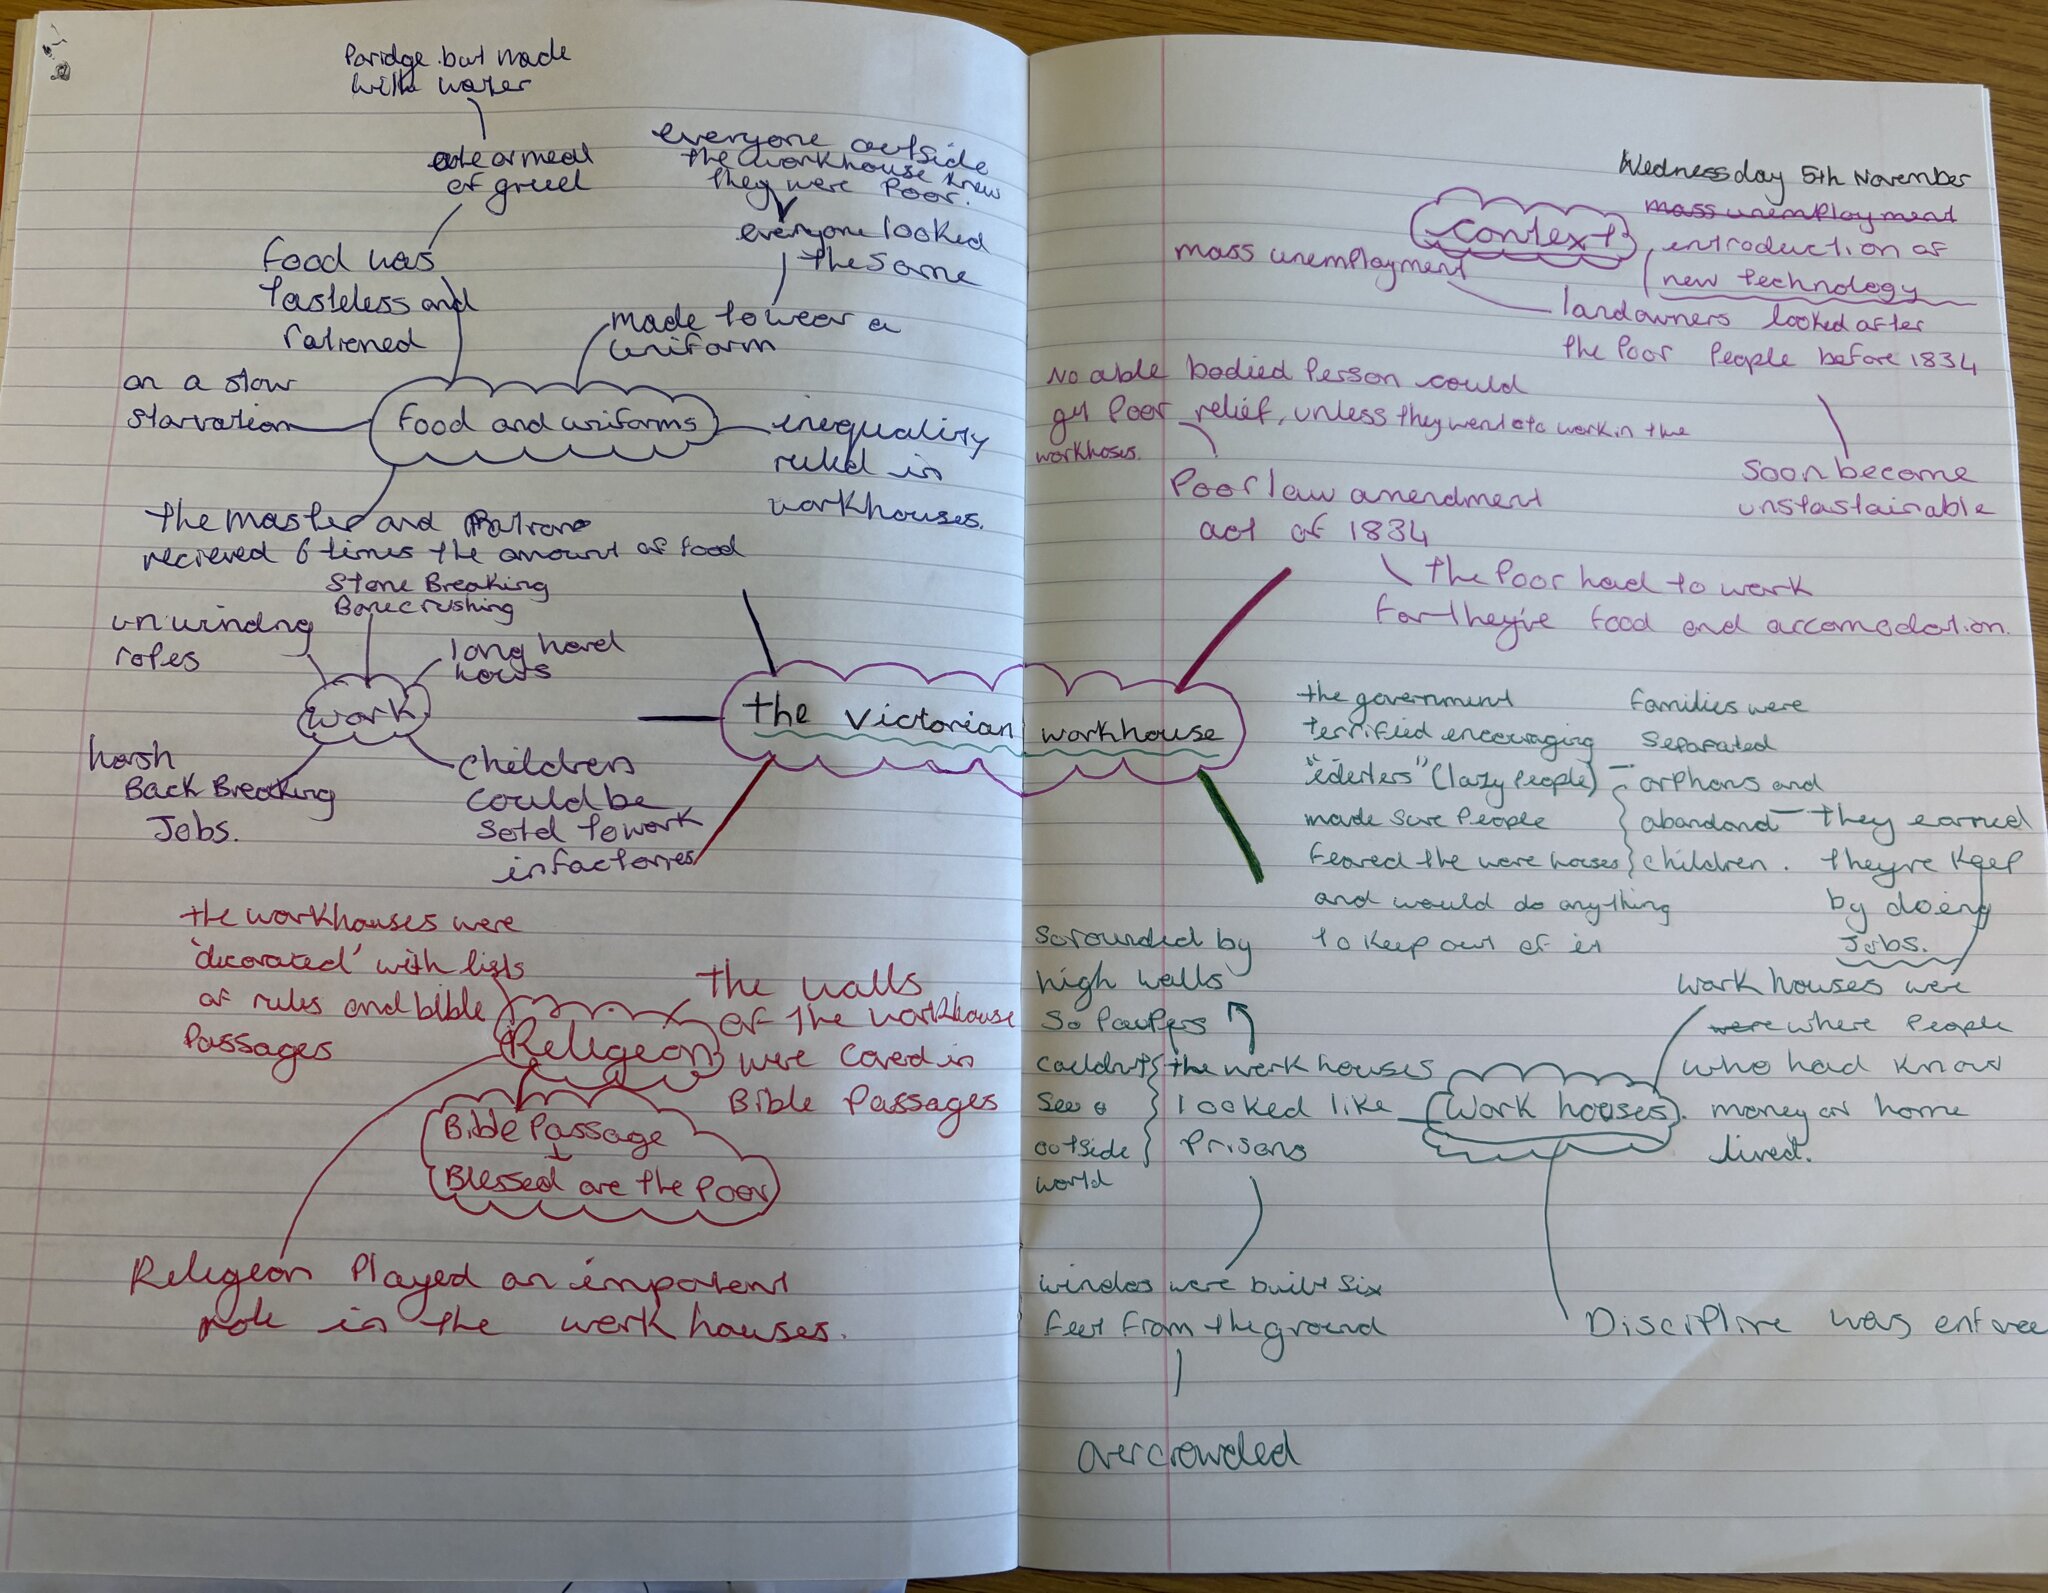 Paridge but made
with water
ate a meal
of gruel
everyone outside
the workhouse knew
they were Poor.
everyone looked
the same
food was
tasteless and
rationed
made to wear a
uniform
on a slow
starvation
food and uniforms
inequality
ruled in
workhouses.
the master and
recieved 6 times the amount of food
Stone Breaking
Bone crushing
unwindng
ropes
long hard
hours
work
harsh
Back Breaking
Jobs.
children
could be
sold to work
in factories
the Victorian workhouse
the workhouses were
'decorated' with lists
of rules and bible
Passages
Religeon
the walls
of the workhouse
were coverd in
Bible Passages
Bible Passage
Blessed are the Poor
Religeon Played an impotent
role in the work houses.
Wednessday 5th November
mass unemployment
context
introduction of
new technology
mass unemployment
landowners looked after
the Poor People before 1834
No able bodied Person could
get Poor relief, unless they went to work in the
workhoses.
soon became
unstastainable
Poor law amendment
act of 1834
the Poor had to work
for they've food and accomodation.
the government
terrified encouraging
"iderlers" (lazy people)
made sure People
feared the were houses
and would do anything
to keep out of it
families were
separated
orphans and
abandand
children.
they earned
they're keep
by doing
Jobs.
work houses were
were where People
who had know
money or home
lived.
Work houses.
sorounded by
high walls
so Paupers
couldn't
see
outside
world
the work houses
looked like
Prisons
windos were built six
feet from the ground
overcrowded
Discipline was